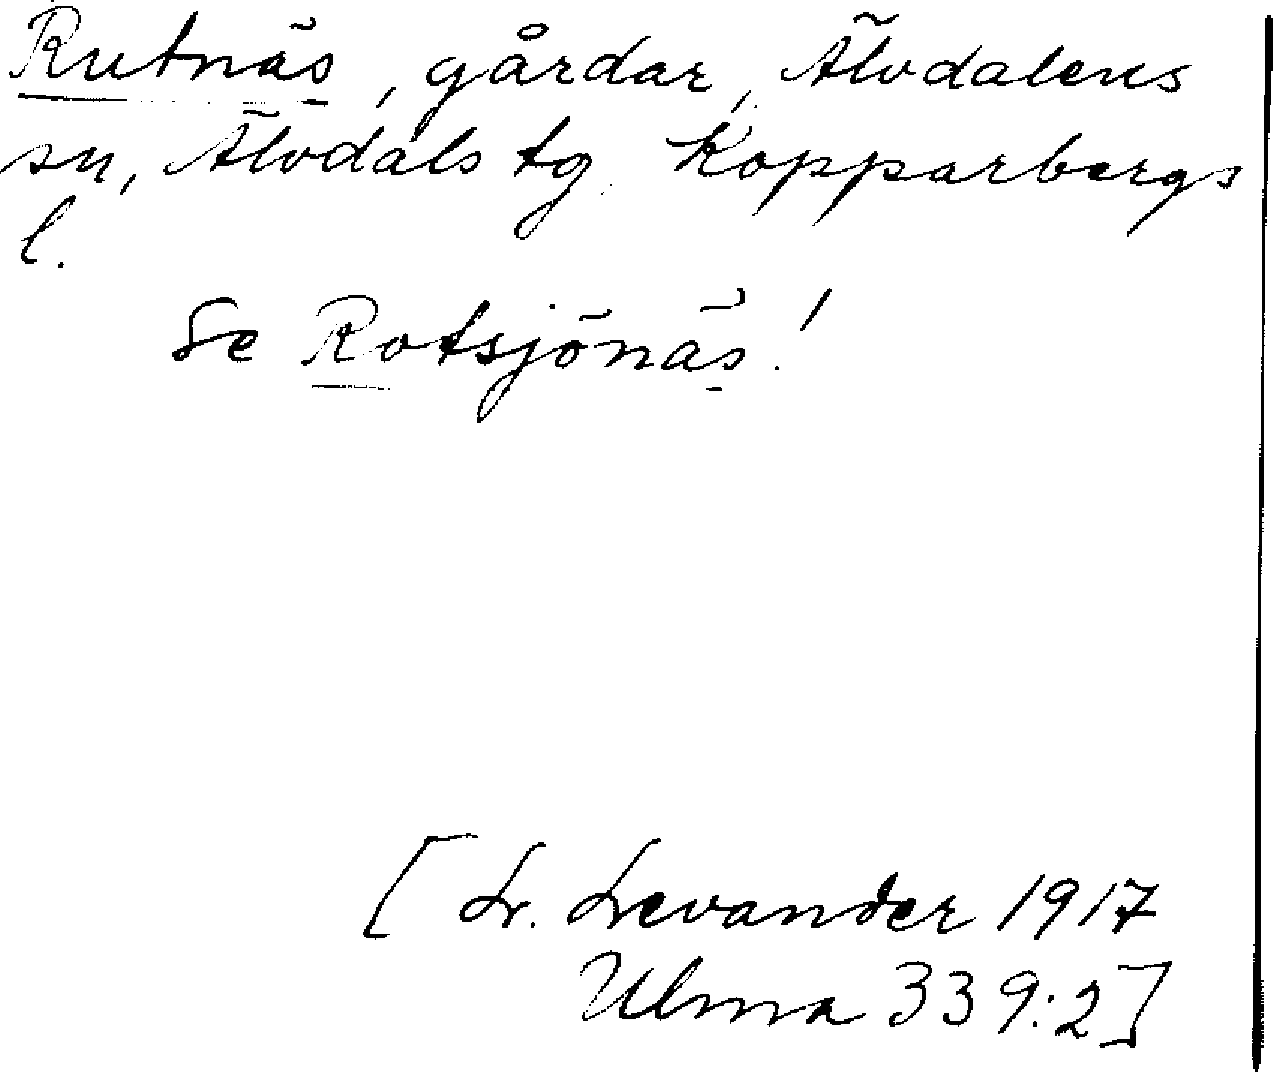 Rutnäs, gårdar, Älvdalens
sn, Älvdals tg. Kopparbergs
l.
Se Rotsjönäs!
[L. Levander 1917
Ulma 339:2]